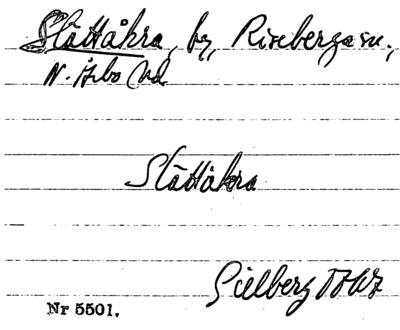 Slättåkra, by, Riseberga sn.,
N. Åbo hd
Slättåkra
Gillberg
Nr 5501.